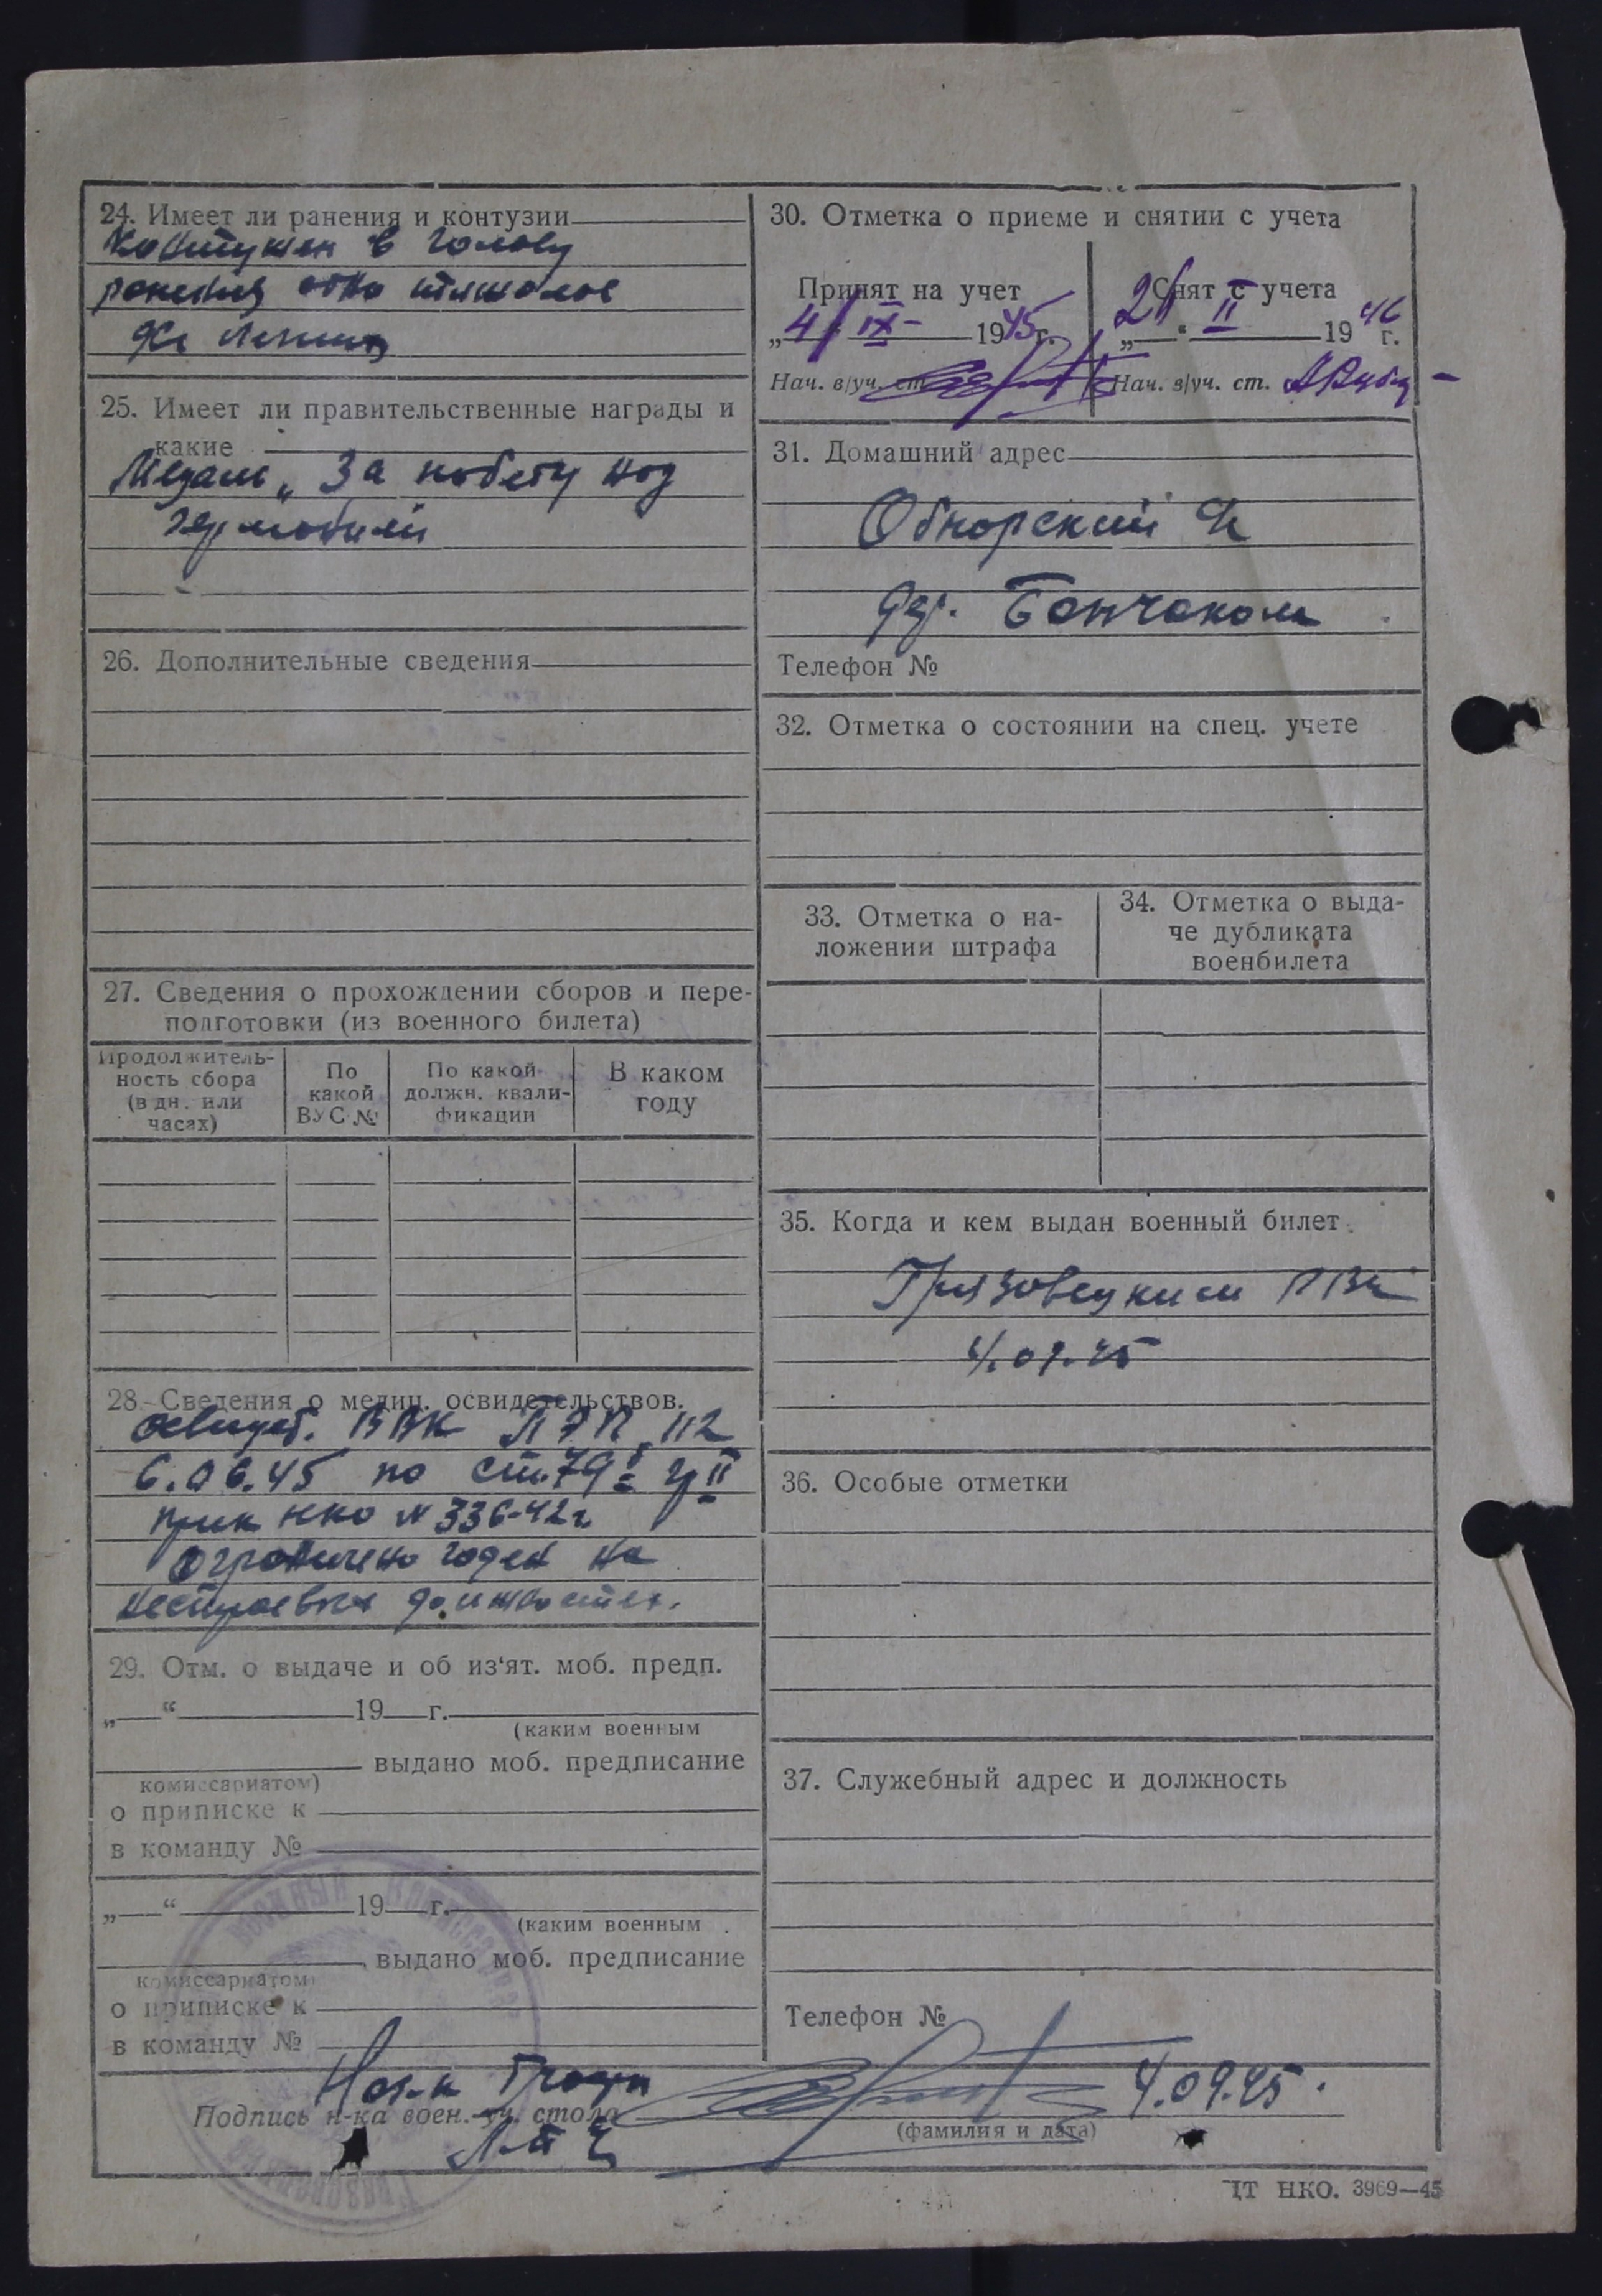 24. Имеет ли ранения и контузии
Контужен в голову
ранения одно тяжолое
25. Имеет ли правительственные награды и
какие
Медаль „За победу над
германией
26. Дополнительные сведения
27. Сведения о прохождении сборов и пере-
подготовки (из военного билета)
Продолжитель-
ность сбора
(в дн. или
часах)
По
какой
ВУС №
По какой
должн. квали-
фикации
В каком
году
28. Сведения о медиц. освидетельствов.
освидет. ВВК ПЭП 112
6.06.45 по ст. 79 гр II
прик НКО № 336-42г.
ограничено годен на
нестроевых должностех.
29. Отм. о выдаче и об из‘ят. моб. предп.
„ “ 19 г.
(каким военным
выдано моб. предписание
комиссариатом)
о приписке к
в команду №
„ “ 19 г.
(каким военным
выдано моб. предписание
комиссариатом
о приписке к
в команду №
30. Отметка о приеме и снятии с учета
Принят на учет
„4 “ IX 1945 г.
Нач. в/уч. ст.
Снят с учета
„ “ II 1946 г.
Нач. в/уч. ст.
31. Домашний адрес
Обнорский
дер.
Телефон №
32. Отметка о состоянии на спец. учете
33. Отметка о на-
ложении штрафа
34. Отметка о выда-
че дубликата
военбилета
35. Когда и кем выдан военный билет
Грязовецким РВК
4.09.45
36. Особые отметки
37. Служебный адрес и должность
Телефон №
Подпись н-ка воен.-уч. стола
4.09.45.
(фамилия и дата)
ЦТ НКО. 3969—45